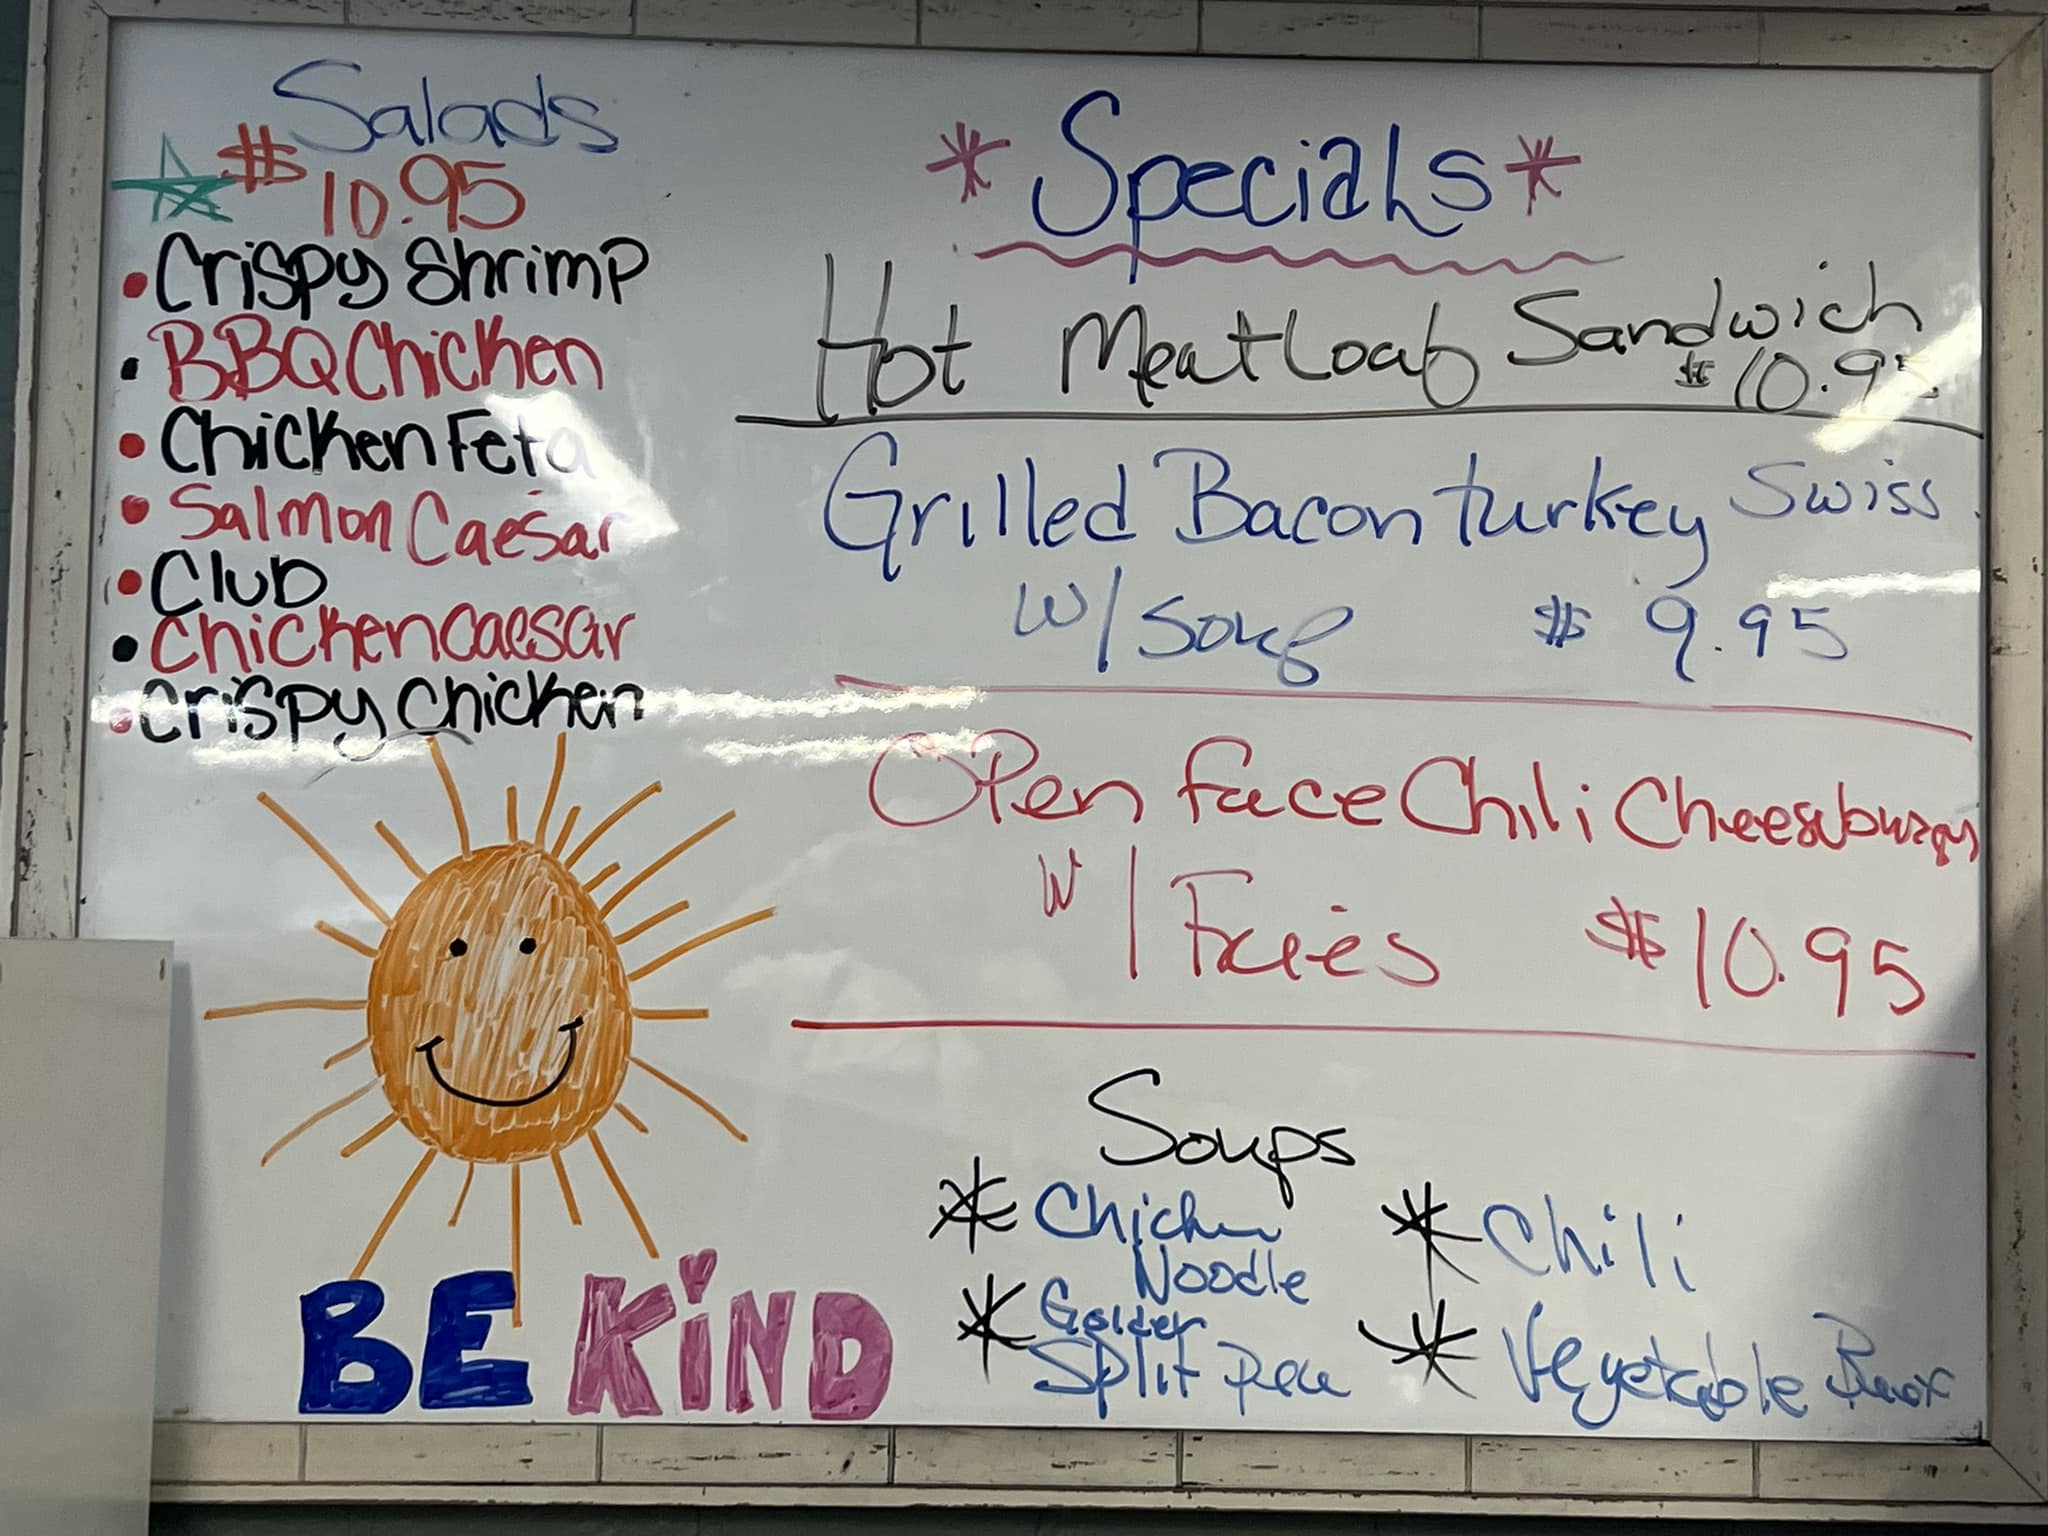 Salads
$10.95
Crispy Shrimp
BBQ Chicken
Chicken Feta
Salmon Caesar
Club
Chicken Caesar
Crispy Chicken
BE KIND
* Specials *
Hot Meatloaf Sandwich
$10.95
Grilled Bacon turkey Swiss
w/ Soup $9.95
Open face Chili Cheeseburger
w/ Fries $10.95
Soups
* Chicken
Noodle
* Golden
Split Pea
* Chili
* Vegetable